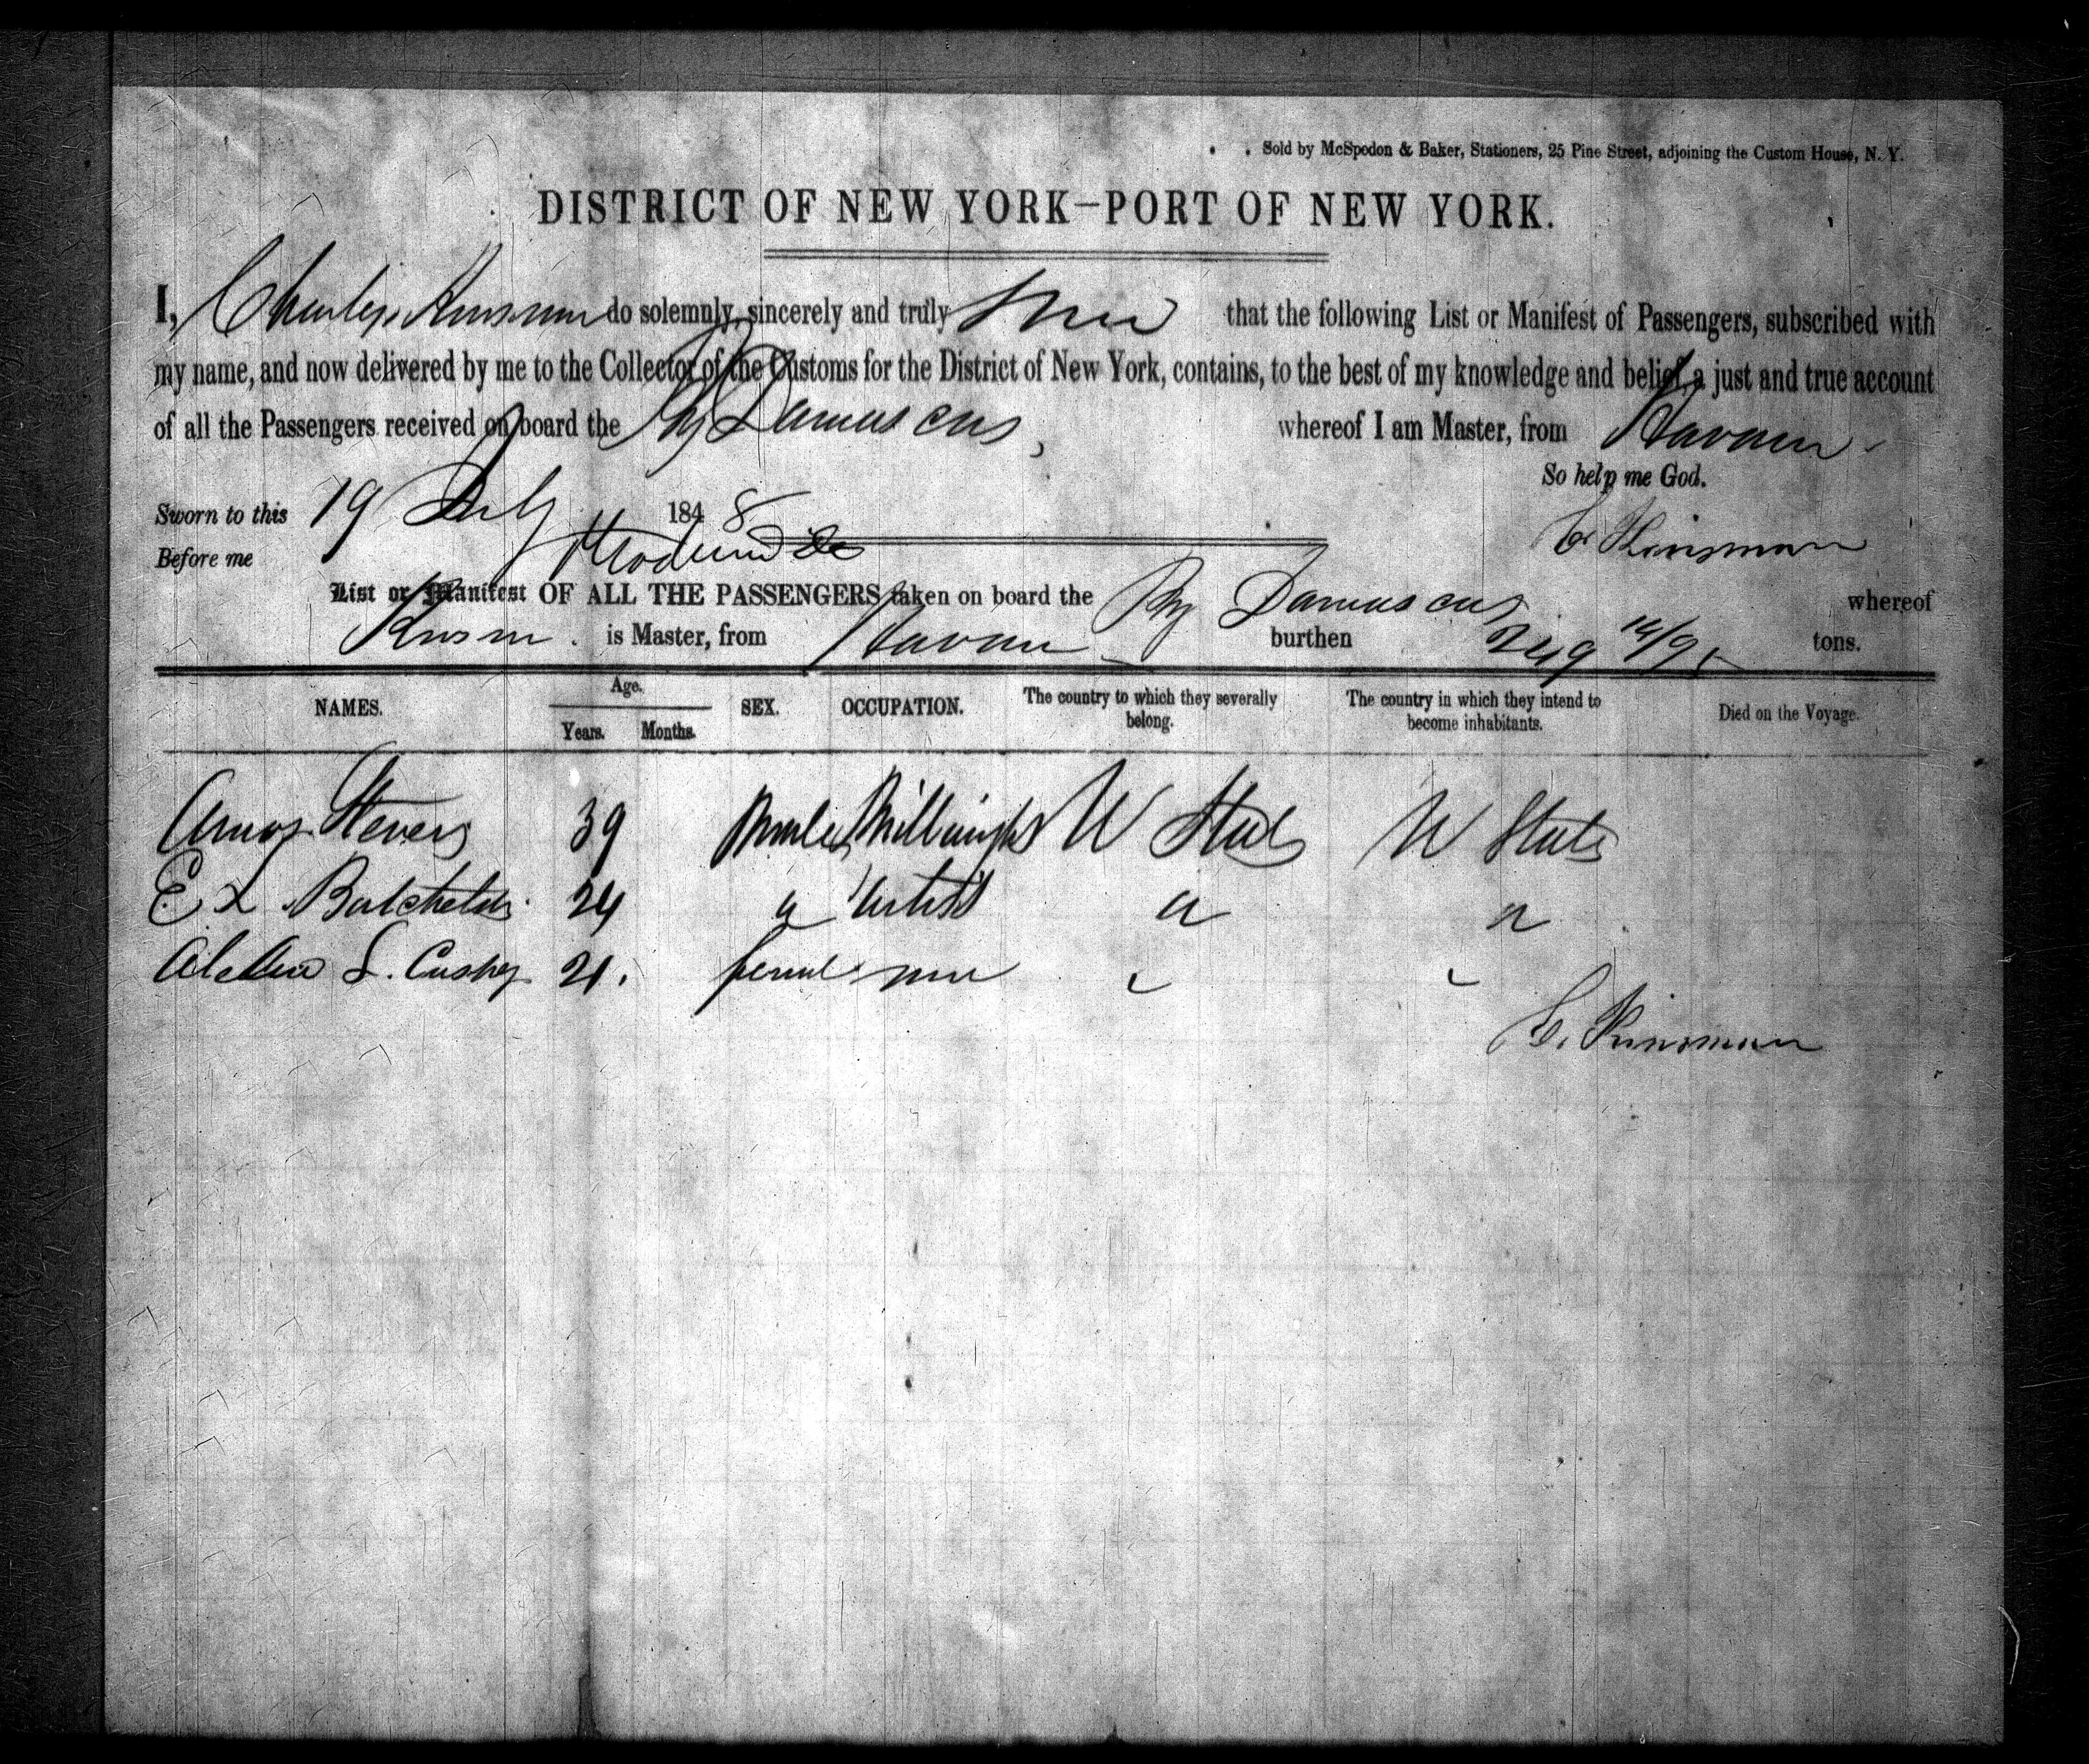 Sold by McSpedon & Baker, Stationers, 25 Pine Street, adjoining the Custom House, N. Y.
DISTRICT OF NEW YORK–PORT OF NEW YORK.
I, Charles Kinsman do solemnly, sincerely and truly that the following List or Manifest of Passengers, subscribed with
my name, and now delivered by me to the Collector of the Customs for the District of New York, contains, to the best of my knowledge and belief, a just and true account
of all the Passengers received on board the Brig Damascus, whereof I am Master, from Havana
So help me God.
Sworn to this 19 July 1848
Before me C. Kinsman
List or Manifest OF ALL THE PASSENGERS taken on board the Brig Damascus whereof
Kinsm is Master, from Havana burthen tons.
NAMES. Age. Years. Months. SEX. OCCUPATION. The country to which they severally belong. The country in which they intend to become inhabitants. Died on the Voyage.
Amos Stevens 39 Male U States U States
E L Batchelder 24 " Artist " "
L. Cushing 21. " "
C. Kinsman